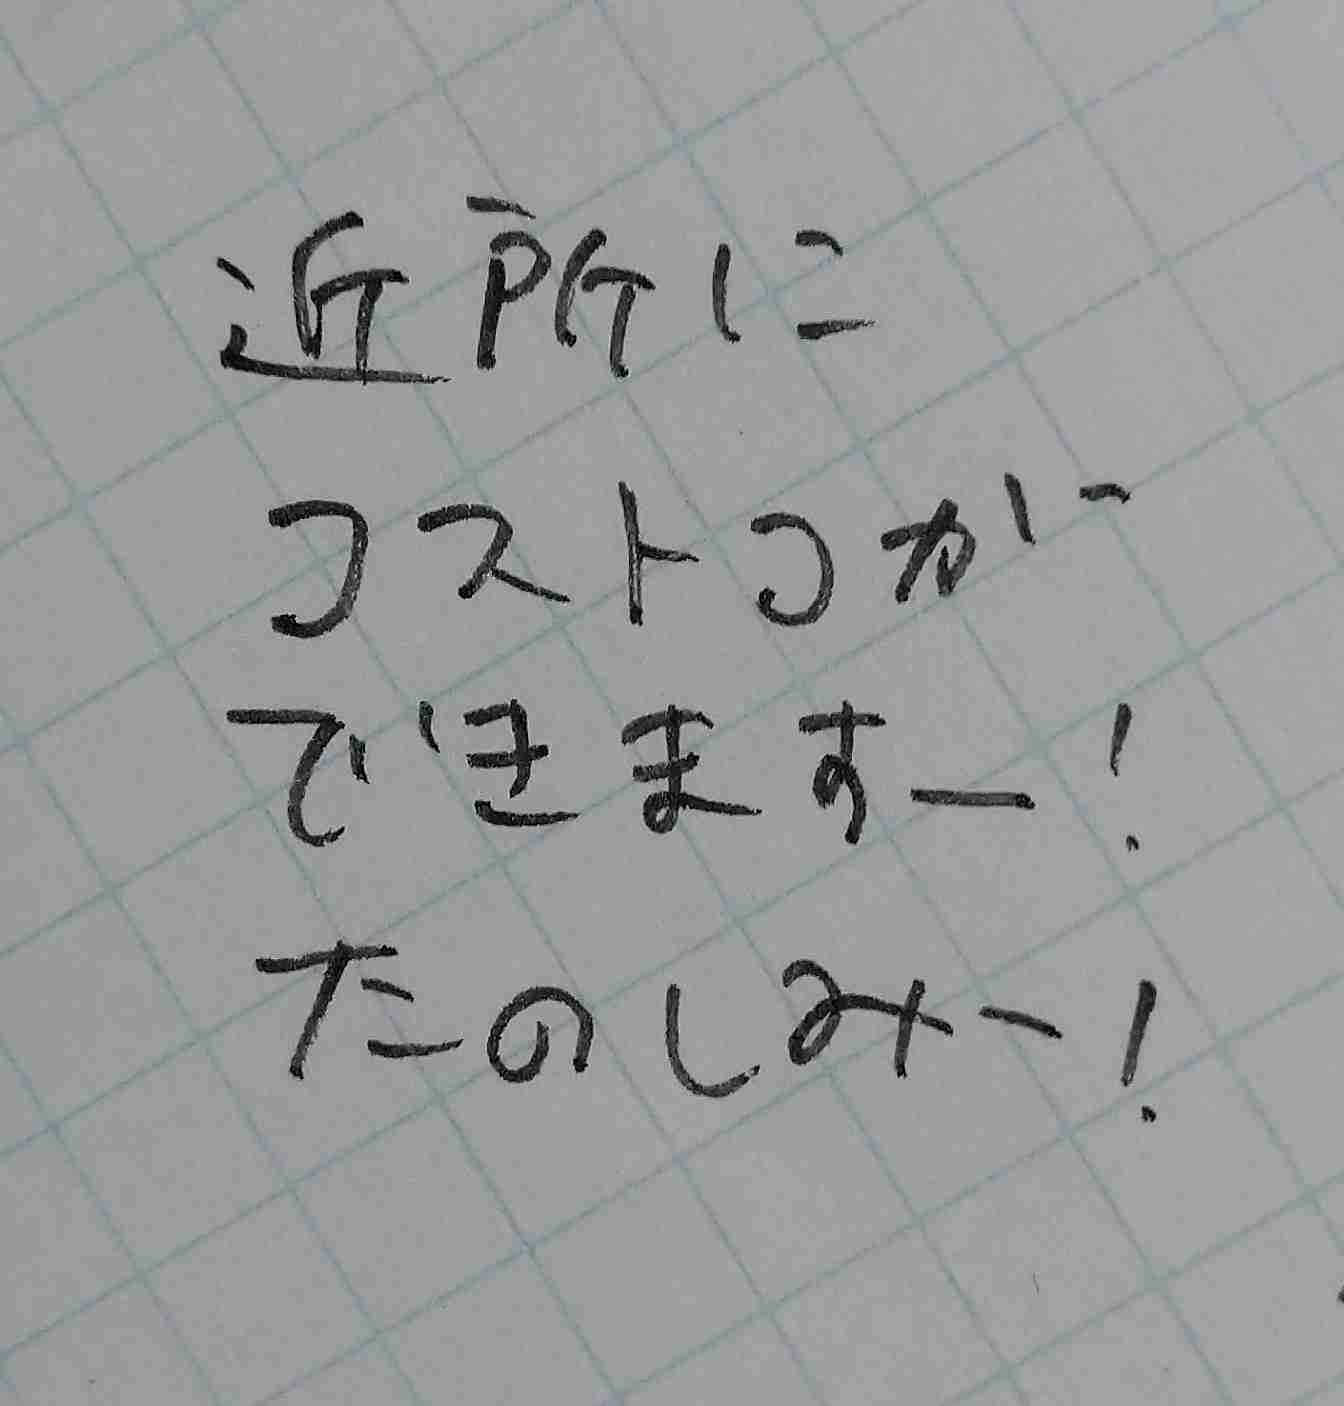 近所に
コストコが
できますー!
たのしみー!